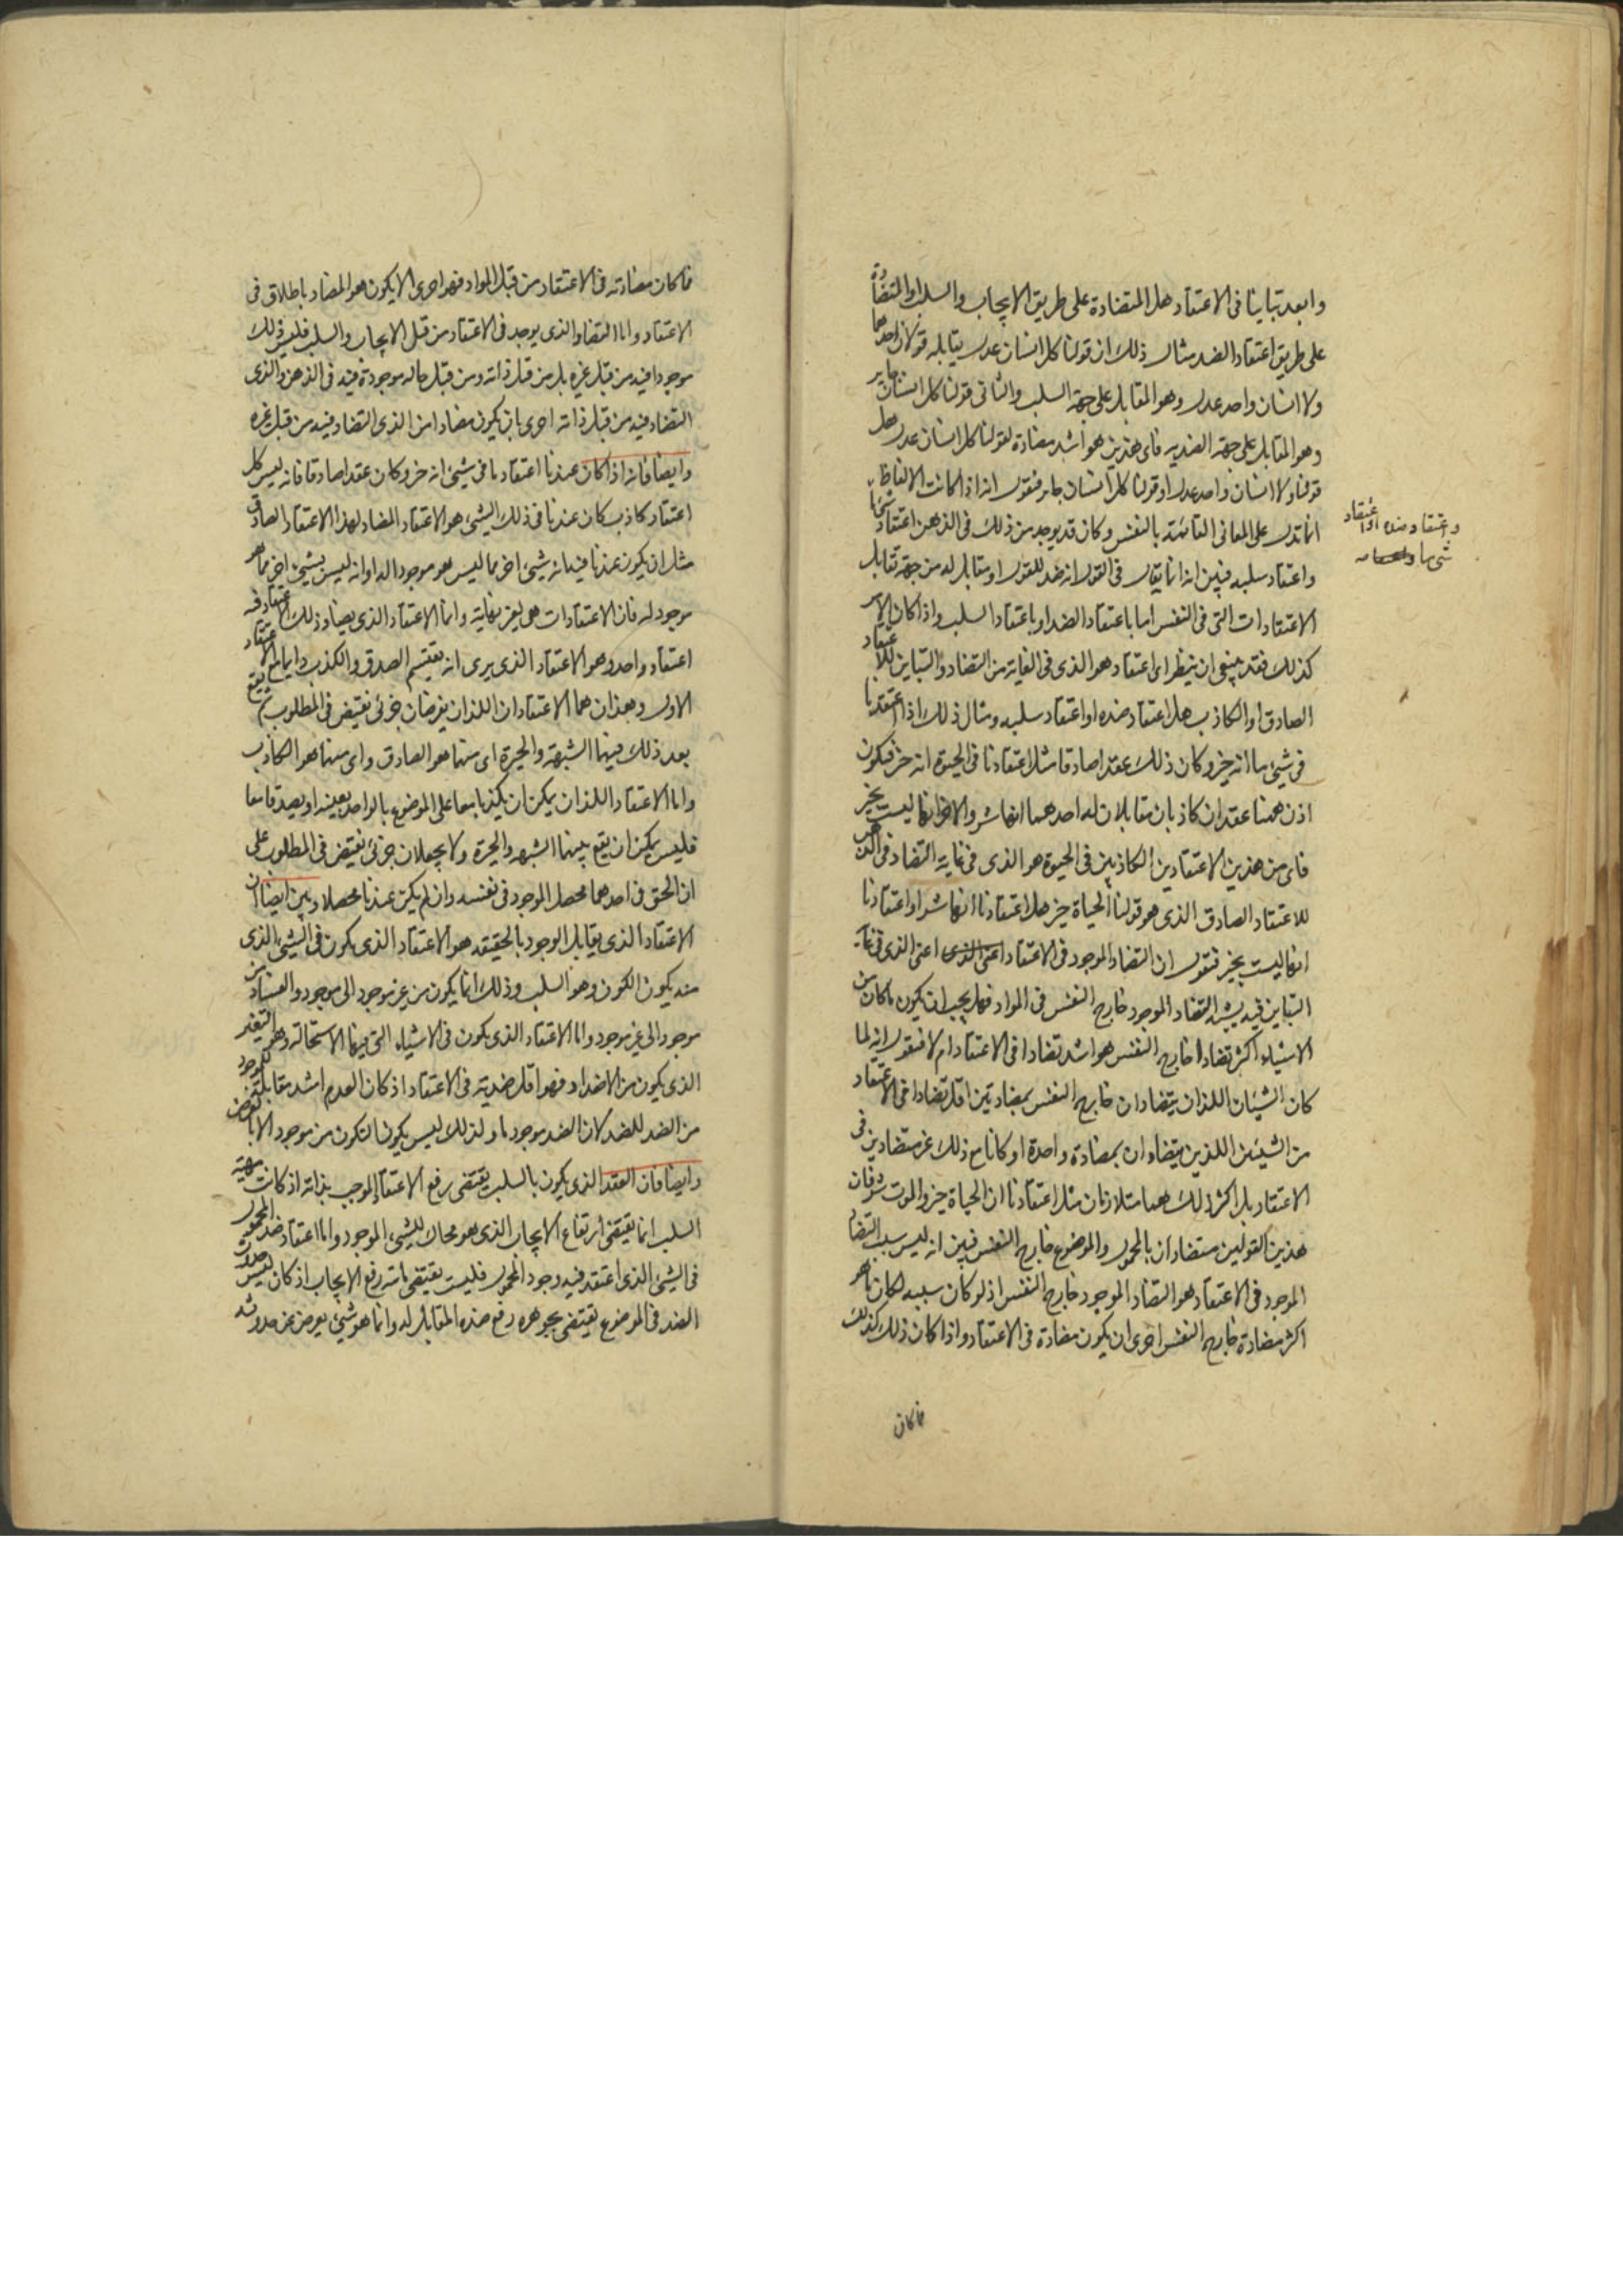 وابعد تباينا فى الاعتقاد هل المتضادة على طريق الايجاب والسلب او المتضادة
على طريق اعتقاد الضد مثال ذلك ان قولنا كل انسان عدل يقابله قولان احدهما
ولا انسان واحد عدل وهو المقابل على جهة السلب والثانى قولنا كل انسان جاير
وهو المقابل على جهة الضديه فاى هذين هو اشد مضادة لقولنا كل انسان عدل هل
قولنا ولا انسان واحد عدل او قولنا كل انسان جاير فنقول انه اذا كانت الالفاظ
انما تدل على المعانى القائمة بالنفس وكان قد يوجد من ذلك فى الذهن اعتقاد شئ ما
واعتقاد ضده او اعتقاد
شى ما و
واعتقاد سلبه فبين انه انما يقال فى القول انه ضد للقول او مقابل له من جهة تقابل
الاعتقادات التى فى النفس اما باعتقاد الضد او باعتقاد السلب واذا كان الامر
كذلك فقد ينبغى ان ينظر اى اعتقاد هو الذى فى الغاية من التضاد والتباين للاعتقاد
الصادق او الكاذب هل اعتقاد ضده او اعتقاد سلبه ومثال ذلك اذا اعتقدنا
فى شئ ما انه خير وكان ذلك عقدا صادقا مثل اعتقادنا فى الحيوة انه خير فيكون
اذن ههنا عقدان كاذبان مقابلان له احدهما انها شر والاخر انها ليست بخير
فاى من هذين الاعتقادين الكاذبين فى الحيوة هو الذى فى غاية التضاد فى الذهن
للاعتقاد الصادق الذى هو قولنا الحياة خير هل اعتقادنا انها شر او اعتقادنا
انها ليست بخير فنقول ان التضاد الموجود فى الاعتقاد اعنى الذى اعنى الذى فى غاية
التباين فيه يشبه التضاد الموجود خارج النفس فى المواد فهل يجب ان يكون ما كان من
الاشياء اكثر تضادا خارج النفس هو اشد تضادا فى الاعتقاد ام لا فنقول انه لما
كان الشيئان اللذان يتضادان خارج النفس بمضادتين اقل تضادا فى الاعتقاد
من الشيئين اللذين يتضادان بمضادة واحدة او كانا مع ذلك غير متضادين فى
الاعتقاد بل اكثر ذلك هما متلازمان مثل اعتقادنا ان الحياة خير والموت شر فان
هذين القولين متضادان بالمحمول والموضوع خارج النفس فبين انه ليس سبب التضاد
الموجود فى الاعتقاد هو التضاد الموجود خارج النفس اذ لو كان سببه لكان ما هو
اكثر مضادة خارج النفس احرى ان يكون مضادة فى الاعتقاد واذا كان ذلك كذلك
فما كان
فما كان مضادته فى الاعتقاد من قبل المواد فهو احرى الا يكون هو المضاد باطلاق فى
الاعتقاد واما التضاد الذى يوجد فى الاعتقاد من قبل الايجاب والسلب فليس ذلك
موجودا فيه من قبل غيره بل من قبل ذاته ومن قبل حاله موجودة فيه فى الذهن والذى
التضاد فيه من قبل ذاته احرى بان يكون مضادا من الذى التضاد فيه من قبل غيره
وايضا فانه اذا كان عندنا اعتقاد ما فى شئ انه خير وكان عقدا صادقا فانه ليس كل
اعتقاد كاذب كان عندنا فى ذلك الشئ هو الاعتقاد المضاد لهذا الاعتقاد الصادق
مثل ان يكون عندنا فيه انه شئ اخر مما ليس هو موجودا له او انه ليس بشئ اخر مما هو
موجود له فان الاعتقادات هى بغير نهاية وانما الاعتقاد الذى يضاد ذلك الاعتقاد فيه
اعتقاد واحد وهو الاعتقاد الذى يرى انه يقتسم الصدق والكذب دايما مع الاعتقاد
الاول وهذان هما الاعتقادان اللذان يفرضان جزئى نقيض فى المطلوب ثم يقع
بعد ذلك فيهما الشبهة والحيرة اى منهما هو الصادق واى منهما هو الكاذب
واما الاعتقاد اللذان يمكن ان يكذبا معا على الموضوع بالواحد بعينه او يصدقا معا
فليس يمكن ان يقع بينهما الشبهه والحيرة ولا يجعلان جزئى نقيض فى المطلوب على
ان الحق فى احدهما محصل الموجود فى نفسه وان لم يكن عندنا محصلا وبين ايضا ان
الاعتقاد الذى يقابل الوجود بالحقيقه هو الاعتقاد الذى يكون فى الشئ الذى
منه يكون الكون وهو السلب وذلك انما يكون من غير موجود الى موجود والفساد من
موجود الى غير موجود واما الاعتقاد الذى يكون فى الاشياء التى فيها الاستحالة وهو التغير
الذى يكون من الاضداد فهو اقل ضديته فى الاعتقاد اذ كان العدم اشد مقابلة للوجود
من الضد للضد لان الضد موجود ما ولذلك ليس يكون التكون من موجود الا بالعرض
وايضا فان العقد الذى يكون بالسلب يقتضى رفع الاعتقاد الموجب بذاته اذ كانت مهية
السلب انما تقتضى ارتفاع الايجاب الذى هو محاك للشئ الموجود واما اعتقاد ضد المحمول
فى الشئ الذى اعتقد فيه وجود المحمول فليست يقتضى ذاته رفع الايجاب اذ كان ليس حدوث
الضد فى الموضوع يقتضى بجوهره رفع ضده المقابل له وانما هو شئ يعرض عن حدوثه